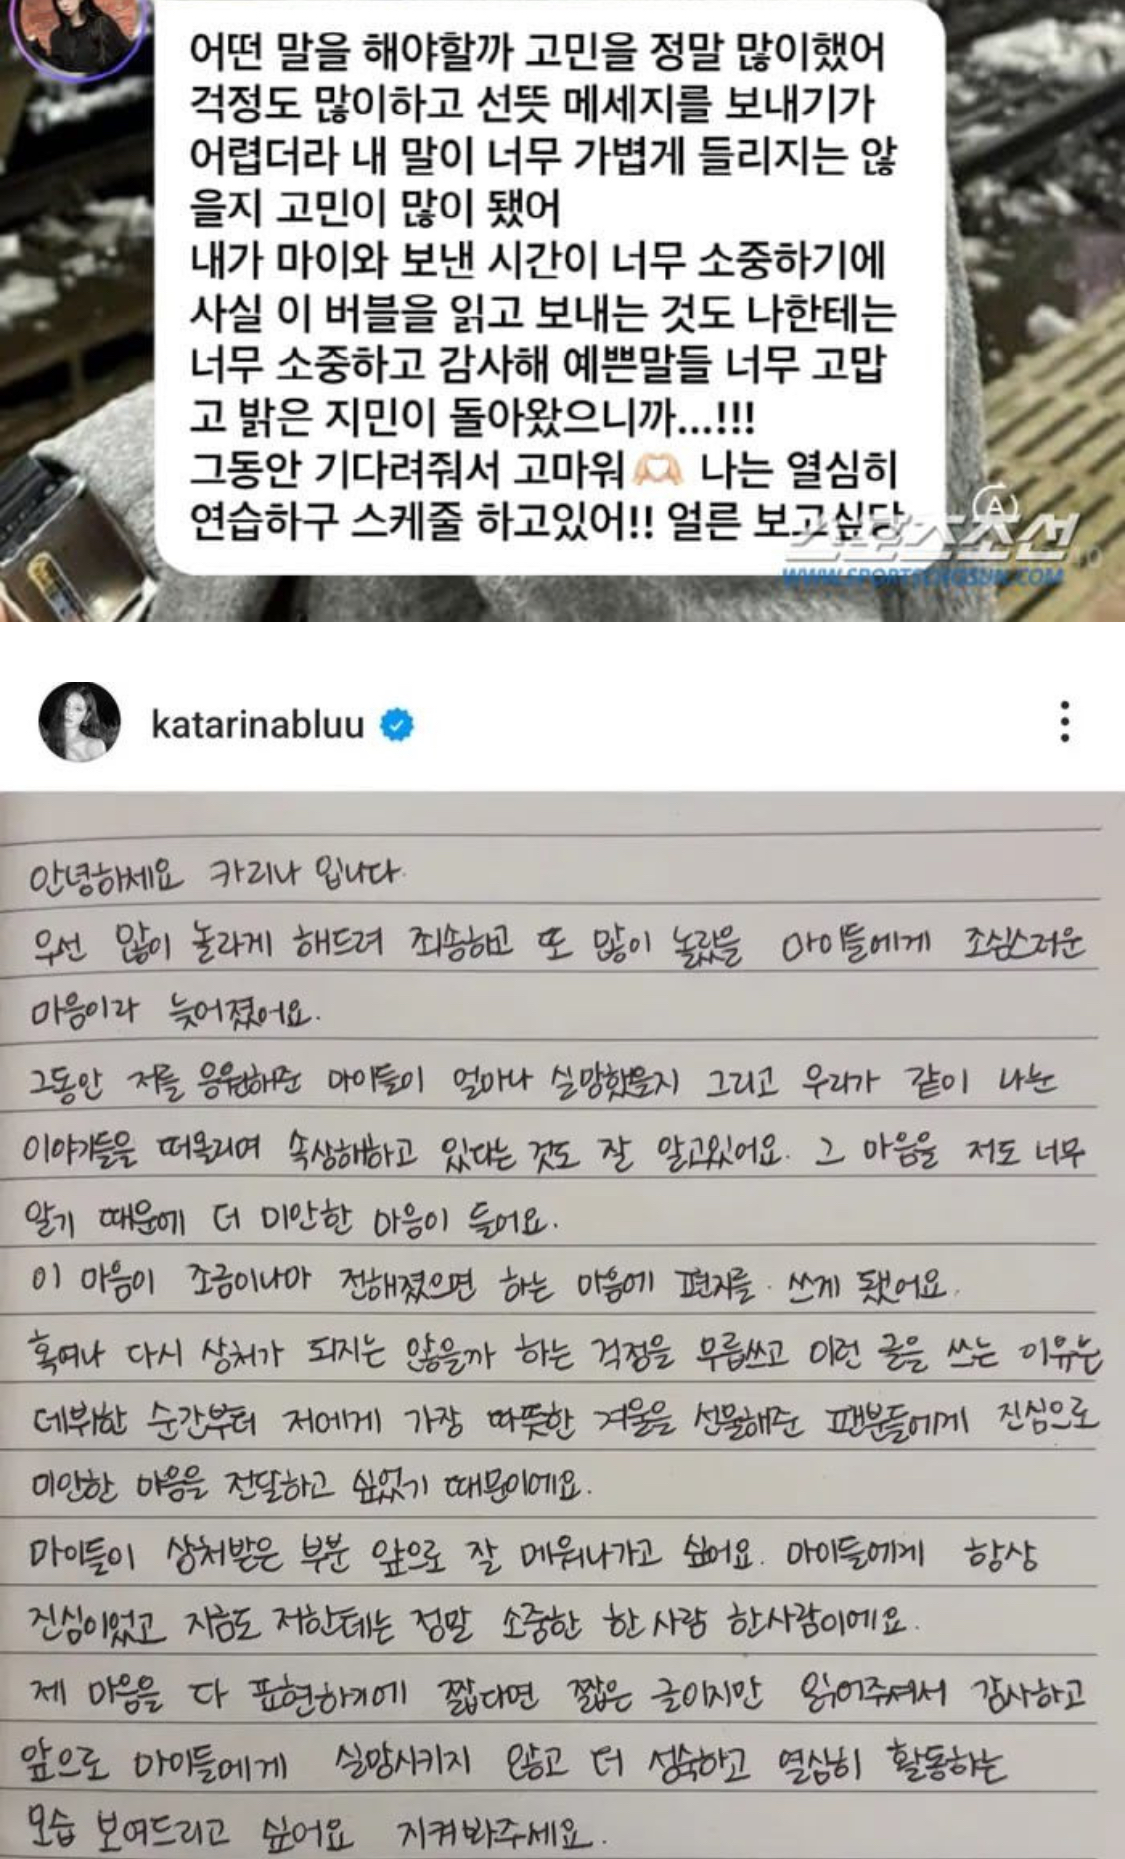 어떤 말을 해야할까 고민을 정말 많이했어
걱정도 많이하고 선뜻 메세지를 보내기가
어렵더라 내 말이 너무 가볍게 들리지는 않
을지 고민이 많이 됐어
내가 마이와 보낸 시간이 너무 소중하기에
사실 이 버블을 읽고 보내는 것도 나한테는
너무 소중하고 감사해 예쁜말들 너무 고맙
고 밝은 지민이 돌아왔으니까...!!!
그동안 기다려줘서 고마워🫶🏻 나는 열심히
연습하구 스케줄 하고있어!! 얼른 보고싶당
스포츠조선
WWW.SPORTSCHOSUN.COM
katarinabluu
안녕하세요 카리나 입니다.
우선 많이 놀라게 해드려 죄송하고 또 많이 놀랐을 마이들에게 조심스러운
마음이라 늦어졌어요.
그동안 저를 응원해준 마이들이 얼마나 실망했을지 그리고 우리가 같이 나눈
이야기들을 떠올리며 속상해하고 있다는 것도 잘 알고있어요. 그 마음을 저도 너무
알기 때문에 더 미안한 마음이 들어요.
이 마음이 조금이나마 전해졌으면 하는 마음에 편지를 쓰게 됐어요.
혹여나 다시 상처가 되지는 않을까 하는 걱정을 무릅쓰고 이런 글을 쓰는 이유는
데뷔한 순간부터 저에게 가장 따뜻한 겨울을 선물해준 팬분들에게 진심으로
미안한 마음을 전달하고 싶었기 때문이에요.
마이들이 상처받은 부분 앞으로 잘 메워나가고 싶어요. 마이들에게 항상
진심이었고 지금도 저한테는 정말 소중한 한 사람 한사람이에요.
제 마음을 다 표현하기에 짧다면 짧은 글이지만 읽어주셔서 감사하고
앞으로 마이들에게 실망시키지 않고 더 성숙하고 열심히 활동하는
모습 보여드리고 싶어요 지켜봐주세요.